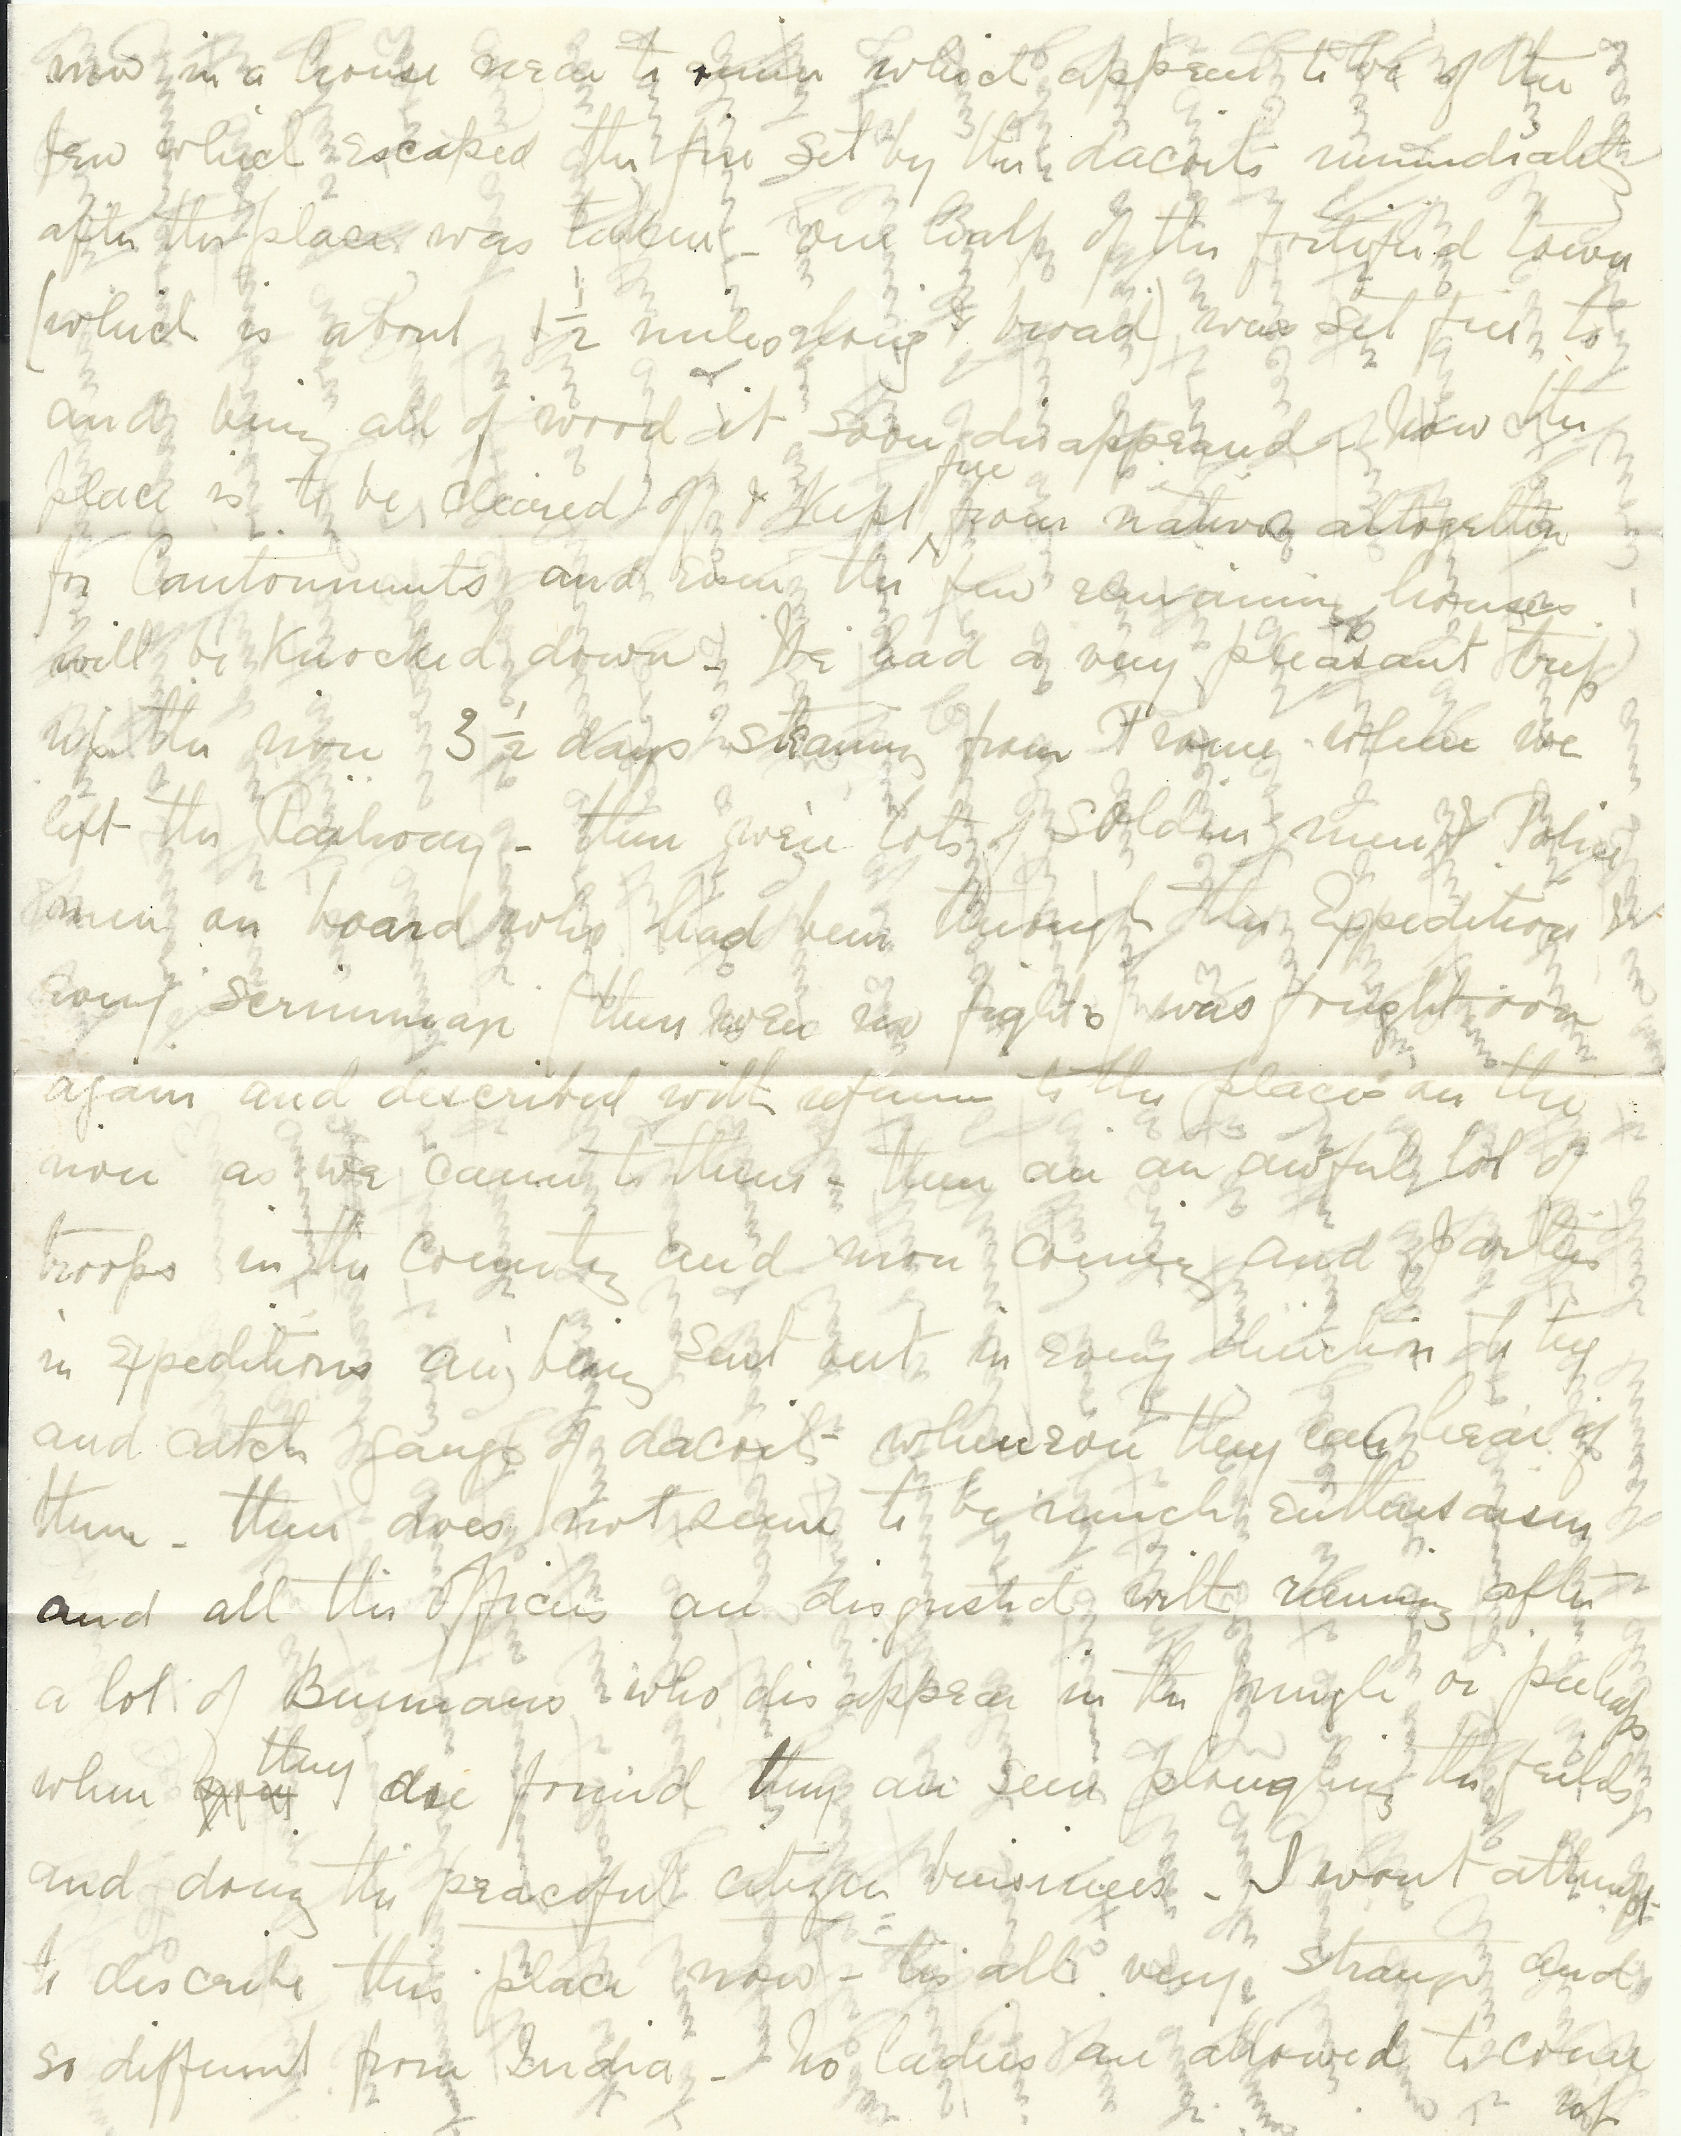 now in a house near to ruin which appears to be of the
few which escaped the fire set by the dacoits immediately
after the place was taken - one half of the fortified town
(which is about 1½ miles long & broad) was set fire to
and being all of wood it soon disappeared - now the
place is to be cleared off & kept free from natives altogether
for Cantonments and even the few remaining houses
will be knocked down - We had a very pleasant trip
up the river 3½ days steaming from Prome where we
left the Railway - there were lots of soldiers, men & Police
men on board who had been through the Expedition &
every scrimmage (there were no fights) was fought over
again and described with reference to the places on the
river as we came to them - there are an awful lot of
troops in the country and more coming and parties
in expeditions are being sent out in every direction to try
and catch gangs of dacoits whenever they can hear of
them - there does not seem to be much enthusiasm
and all the Officers are disgusted with running after
a lot of Burmans who disappear in the jungle or perhaps
when they are found they are seen ploughing the fields
and doing the peaceful citizen business - I wont attempt
to describe this place now - tis all very strange and
so different from India - No ladies are allowed to come